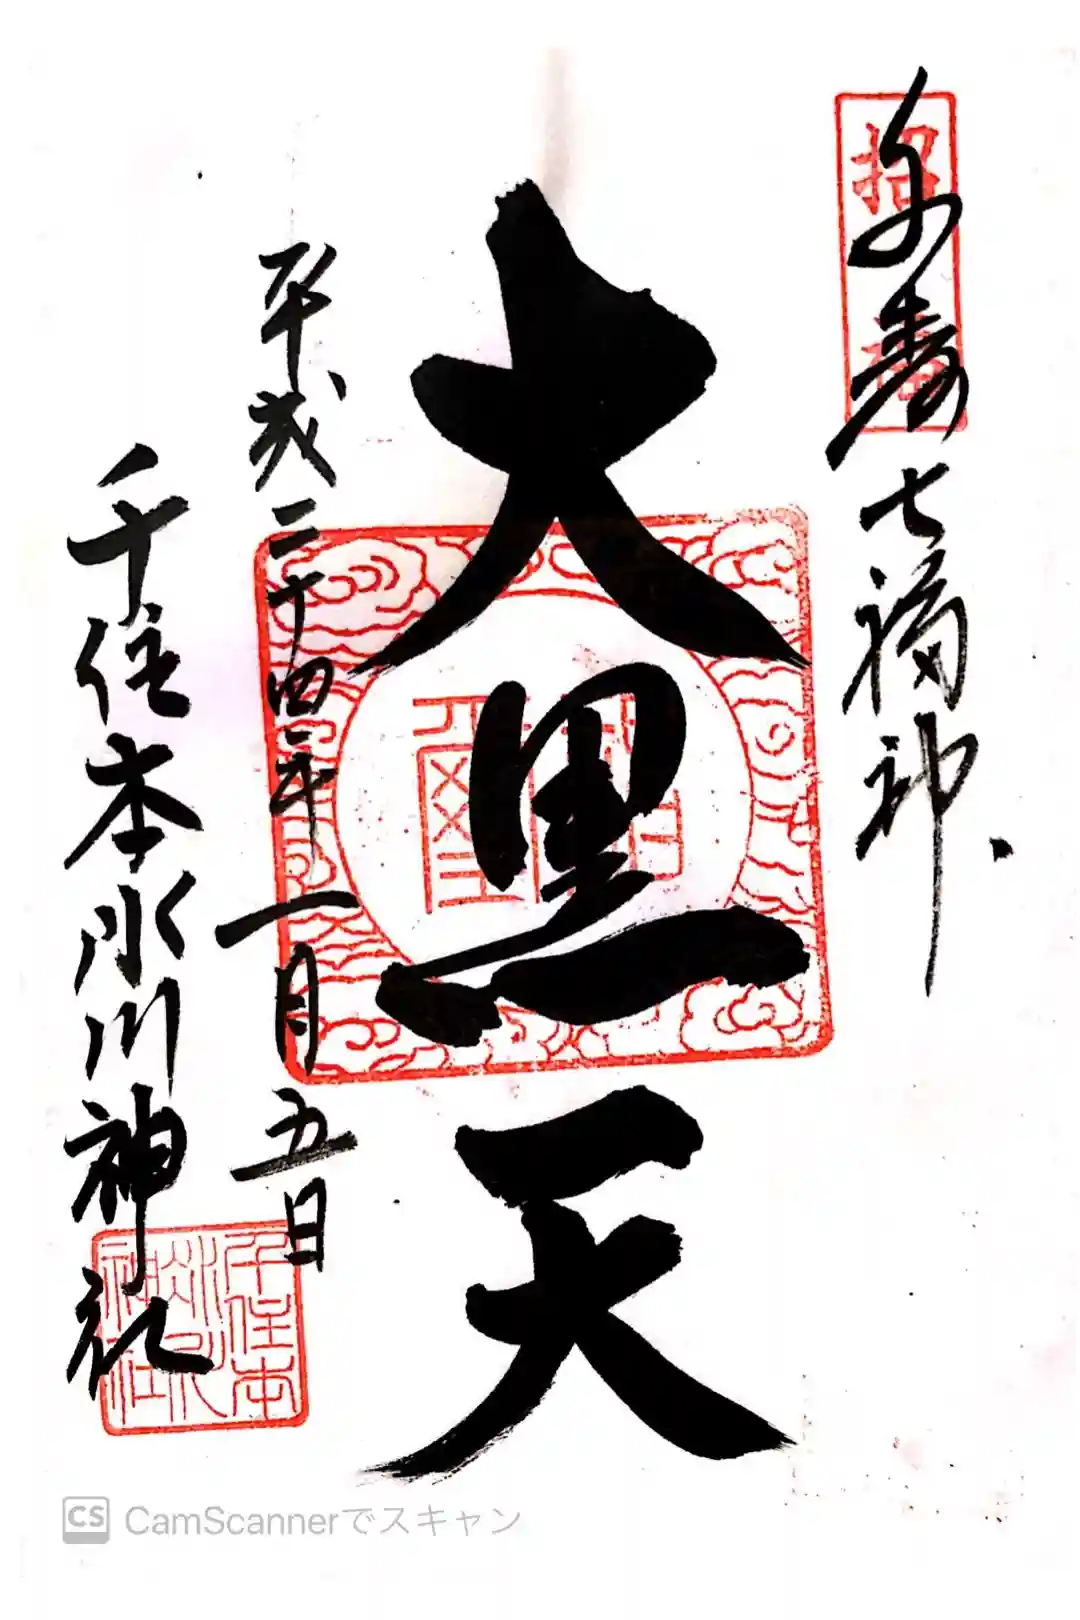 千寿七福神
招福
大黒天
平成二十四年一月五日
千住本氷川神社
千住本
氷川
神社
CS CamScannerでスキャン